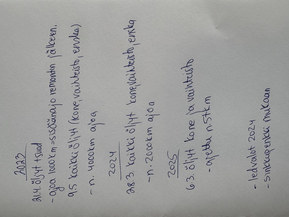 2023
21.4. öljyt+suod
- ajoa 1000km->sisäänajo remontin jälkeen.
9.5 kaikki öljyt (kone, vaihteisto, enska)
- n. 4000km ajoa
2024
28.3. kaikki öljyt kone, vaihteisto, enska
- n. 2000km ajoa
2025
6.3. öljyt kone ja vaihteisto
- ajettu n 5tkm
- ledvalot 2024
- sinkkupenkki mukaan